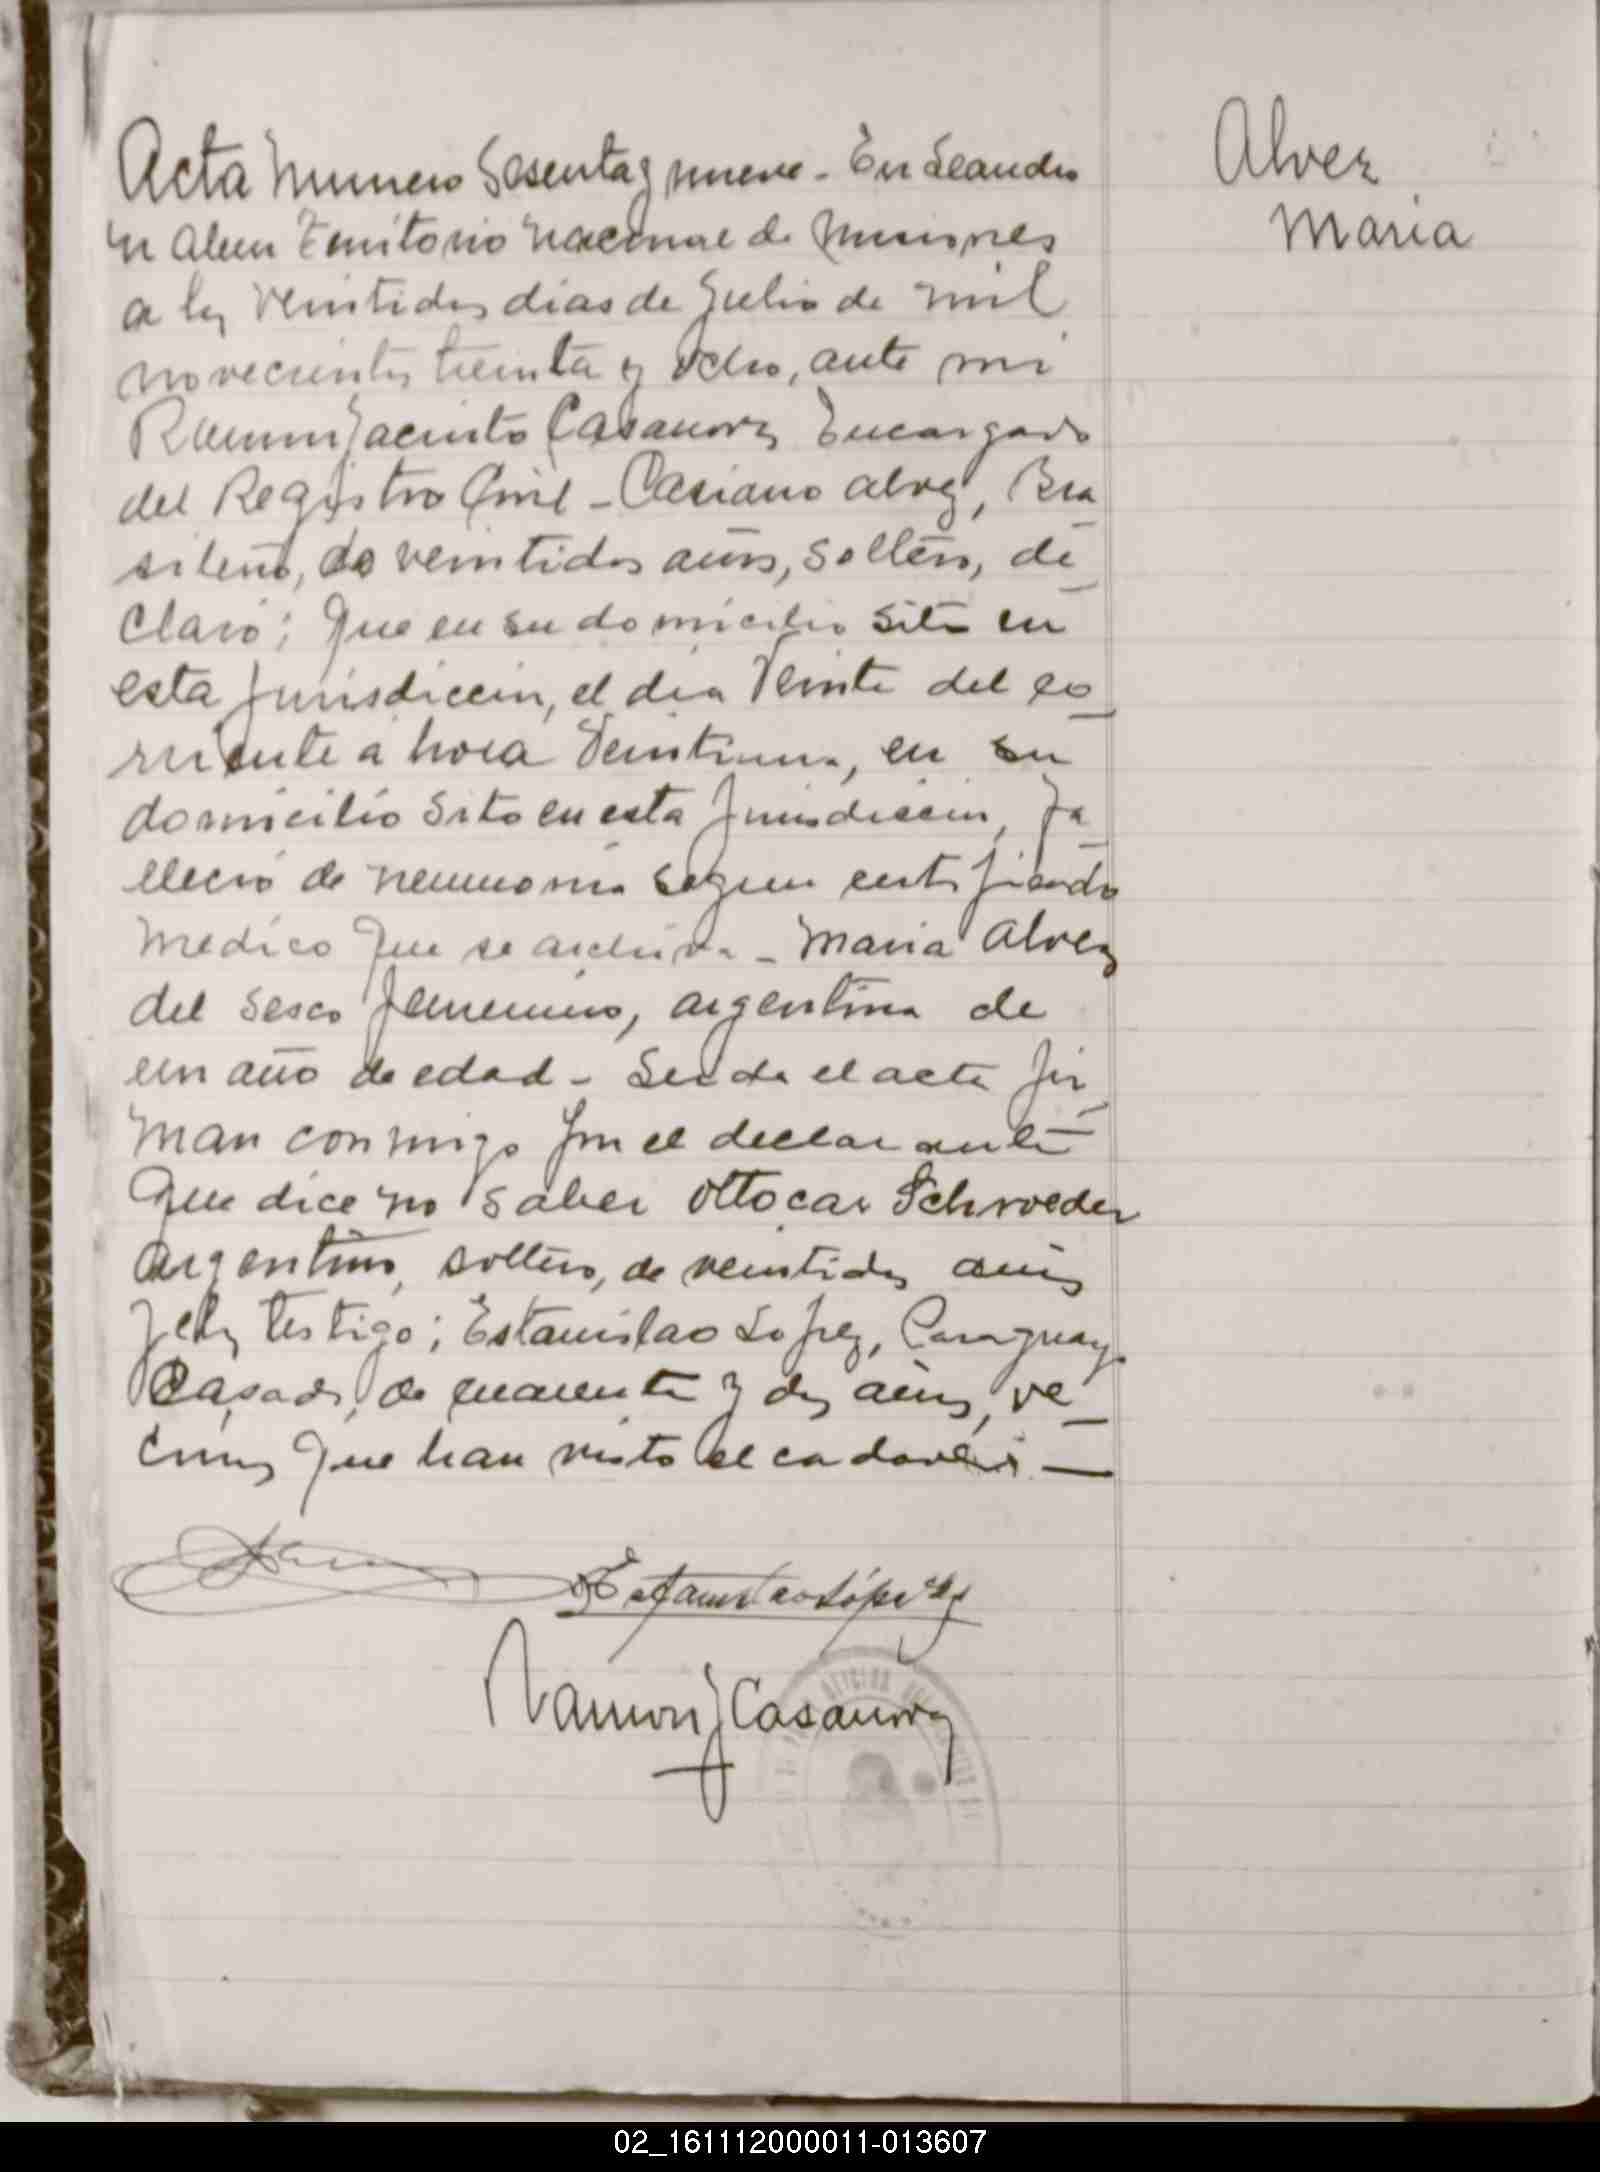 Alvez
Maria
Acta Numero Sesenta y nueve - En Leandro
N Alem Territorio Nacional de Misiones
a los veintidos dias de Julio de mil
novecientos treinta y ocho, ante mi
Ramon Jacinto Casanova Encargado
del Registro Civil - Casiano Alvez, Bra
sileño, de veintidos años, soltero, de
claró; Que en su domicilio sito en
esta jurisdiccion, el dia Veinte del co
rriente a hora Veintiuna, en su
domicilio sito en esta Jurisdiccion, fa
lleció de neumonia segun certificado
Medico que se archiva - Maria Alvez
del sexo femenino, argentina de
un año de edad - Leida el acta fir
man conmigo por el declarante
Que dice no saber Ottocar Schroeder
Argentino, soltero, de veintidos años
y el testigo; Estanislao Lopez, Paraguayo
Casado, de cuarenta y dos años, ve
cinos que han visto el cadaver -
Estanislao López
Ramon J Casanova
02_161112000011-013607